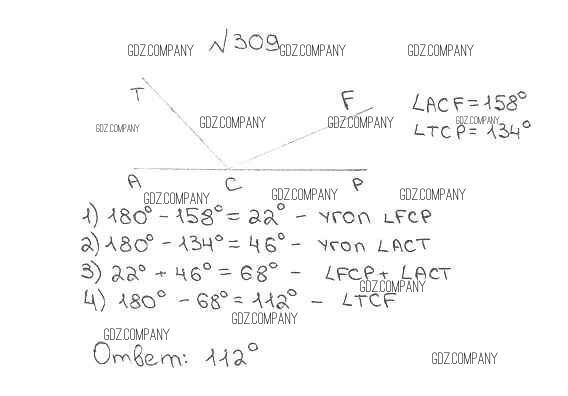 №309
GDZ.COMPANY GDZ.COMPANY GDZ.COMPANY
T F ∠ACF=158°
GDZ.COMPANY GDZ.COMPANY GDZ.COMPANY GDZ.COMPANY
∠TCP=134°
A C P
GDZ.COMPANY GDZ.COMPANY GDZ.COMPANY
1) 180° - 158° = 22° - угол ∠FCP
2) 180° - 134° = 46° - угол ∠ACT
3) 22° + 46° = 68° - ∠FCP + ∠ACT
GDZ.COMPANY
4) 180° - 68° = 112° - ∠TCF
GDZ.COMPANY
GDZ.COMPANY
Ответ: 112°
GDZ.COMPANY